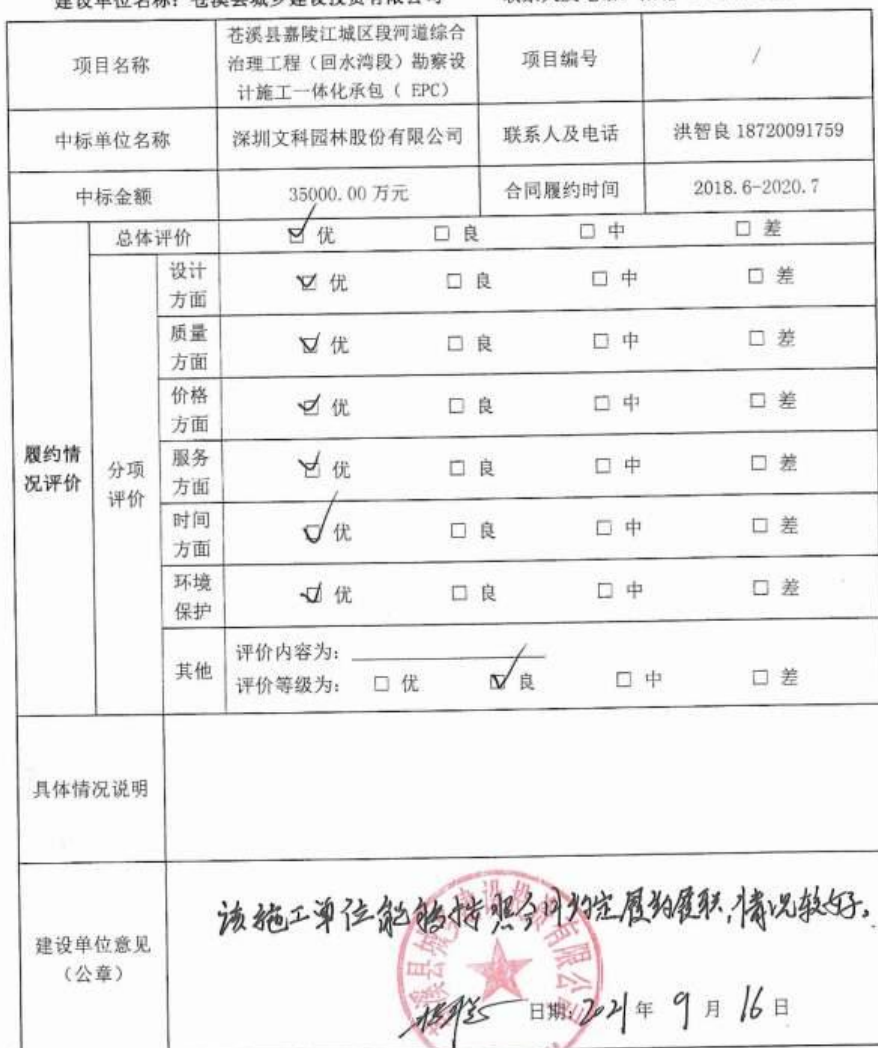 建设单位名称：苍溪县城乡建设投资有限公司
项目名称
苍溪县嘉陵江城区段河道综合
治理工程（回水湾段）勘察设
计施工一体化承包（ EPC）
项目编号
/
中标单位名称
深圳文科园林股份有限公司
联系人及电话
洪智良 18720091759
中标金额
35000.00 万元
合同履约时间
2018.6-2020.7
履约情
况评价
总体评价
☑ 优 □ 良 □ 中 □ 差
分项
评价
设计
方面
☑ 优 □ 良 □ 中 □ 差
质量
方面
☑ 优 □ 良 □ 中 □ 差
价格
方面
☑ 优 □ 良 □ 中 □ 差
服务
方面
☑ 优 □ 良 □ 中 □ 差
时间
方面
☑ 优 □ 良 □ 中 □ 差
环境
保护
☑ 优 □ 良 □ 中 □ 差
其他
评价内容为：
评价等级为： □ 优 ☑ 良 □ 中 □ 差
具体情况说明
建设单位意见
（公章）
该施工单位能够按照合同约定履约履职,情况较好。
苍溪县城乡建设投资有限公司
日期:2021 年 9 月 16 日